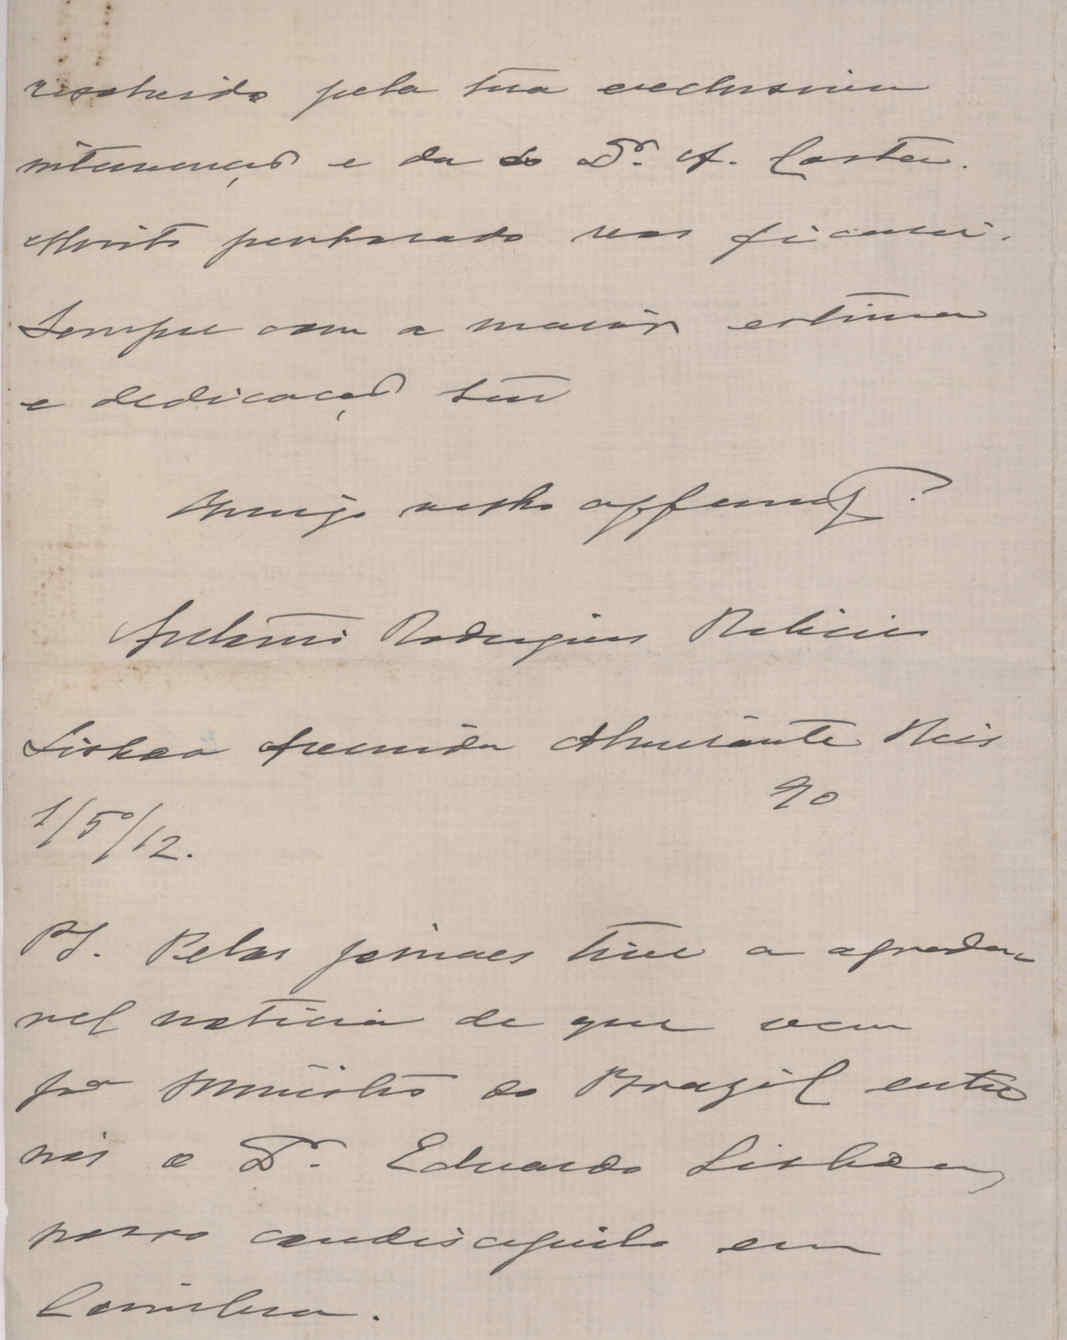 resolvido pela tua exclusiva
intervenção e da do Dr. A. Costa.
Muito penhorado vos ficarei.
Sempre com a maior estima
e dedicação sou
Amigo velho
Antonio Rodrigues
Lisboa Avenida Almirante Reis
90
1/5º/12.
PS. Pelos jornaes tive a agrada-
vel noticia de que vem
pa Ministro do Brazil entre
nós o Dr. Eduardo Lisboa,
nosso condiscipulo em
Coimbra.